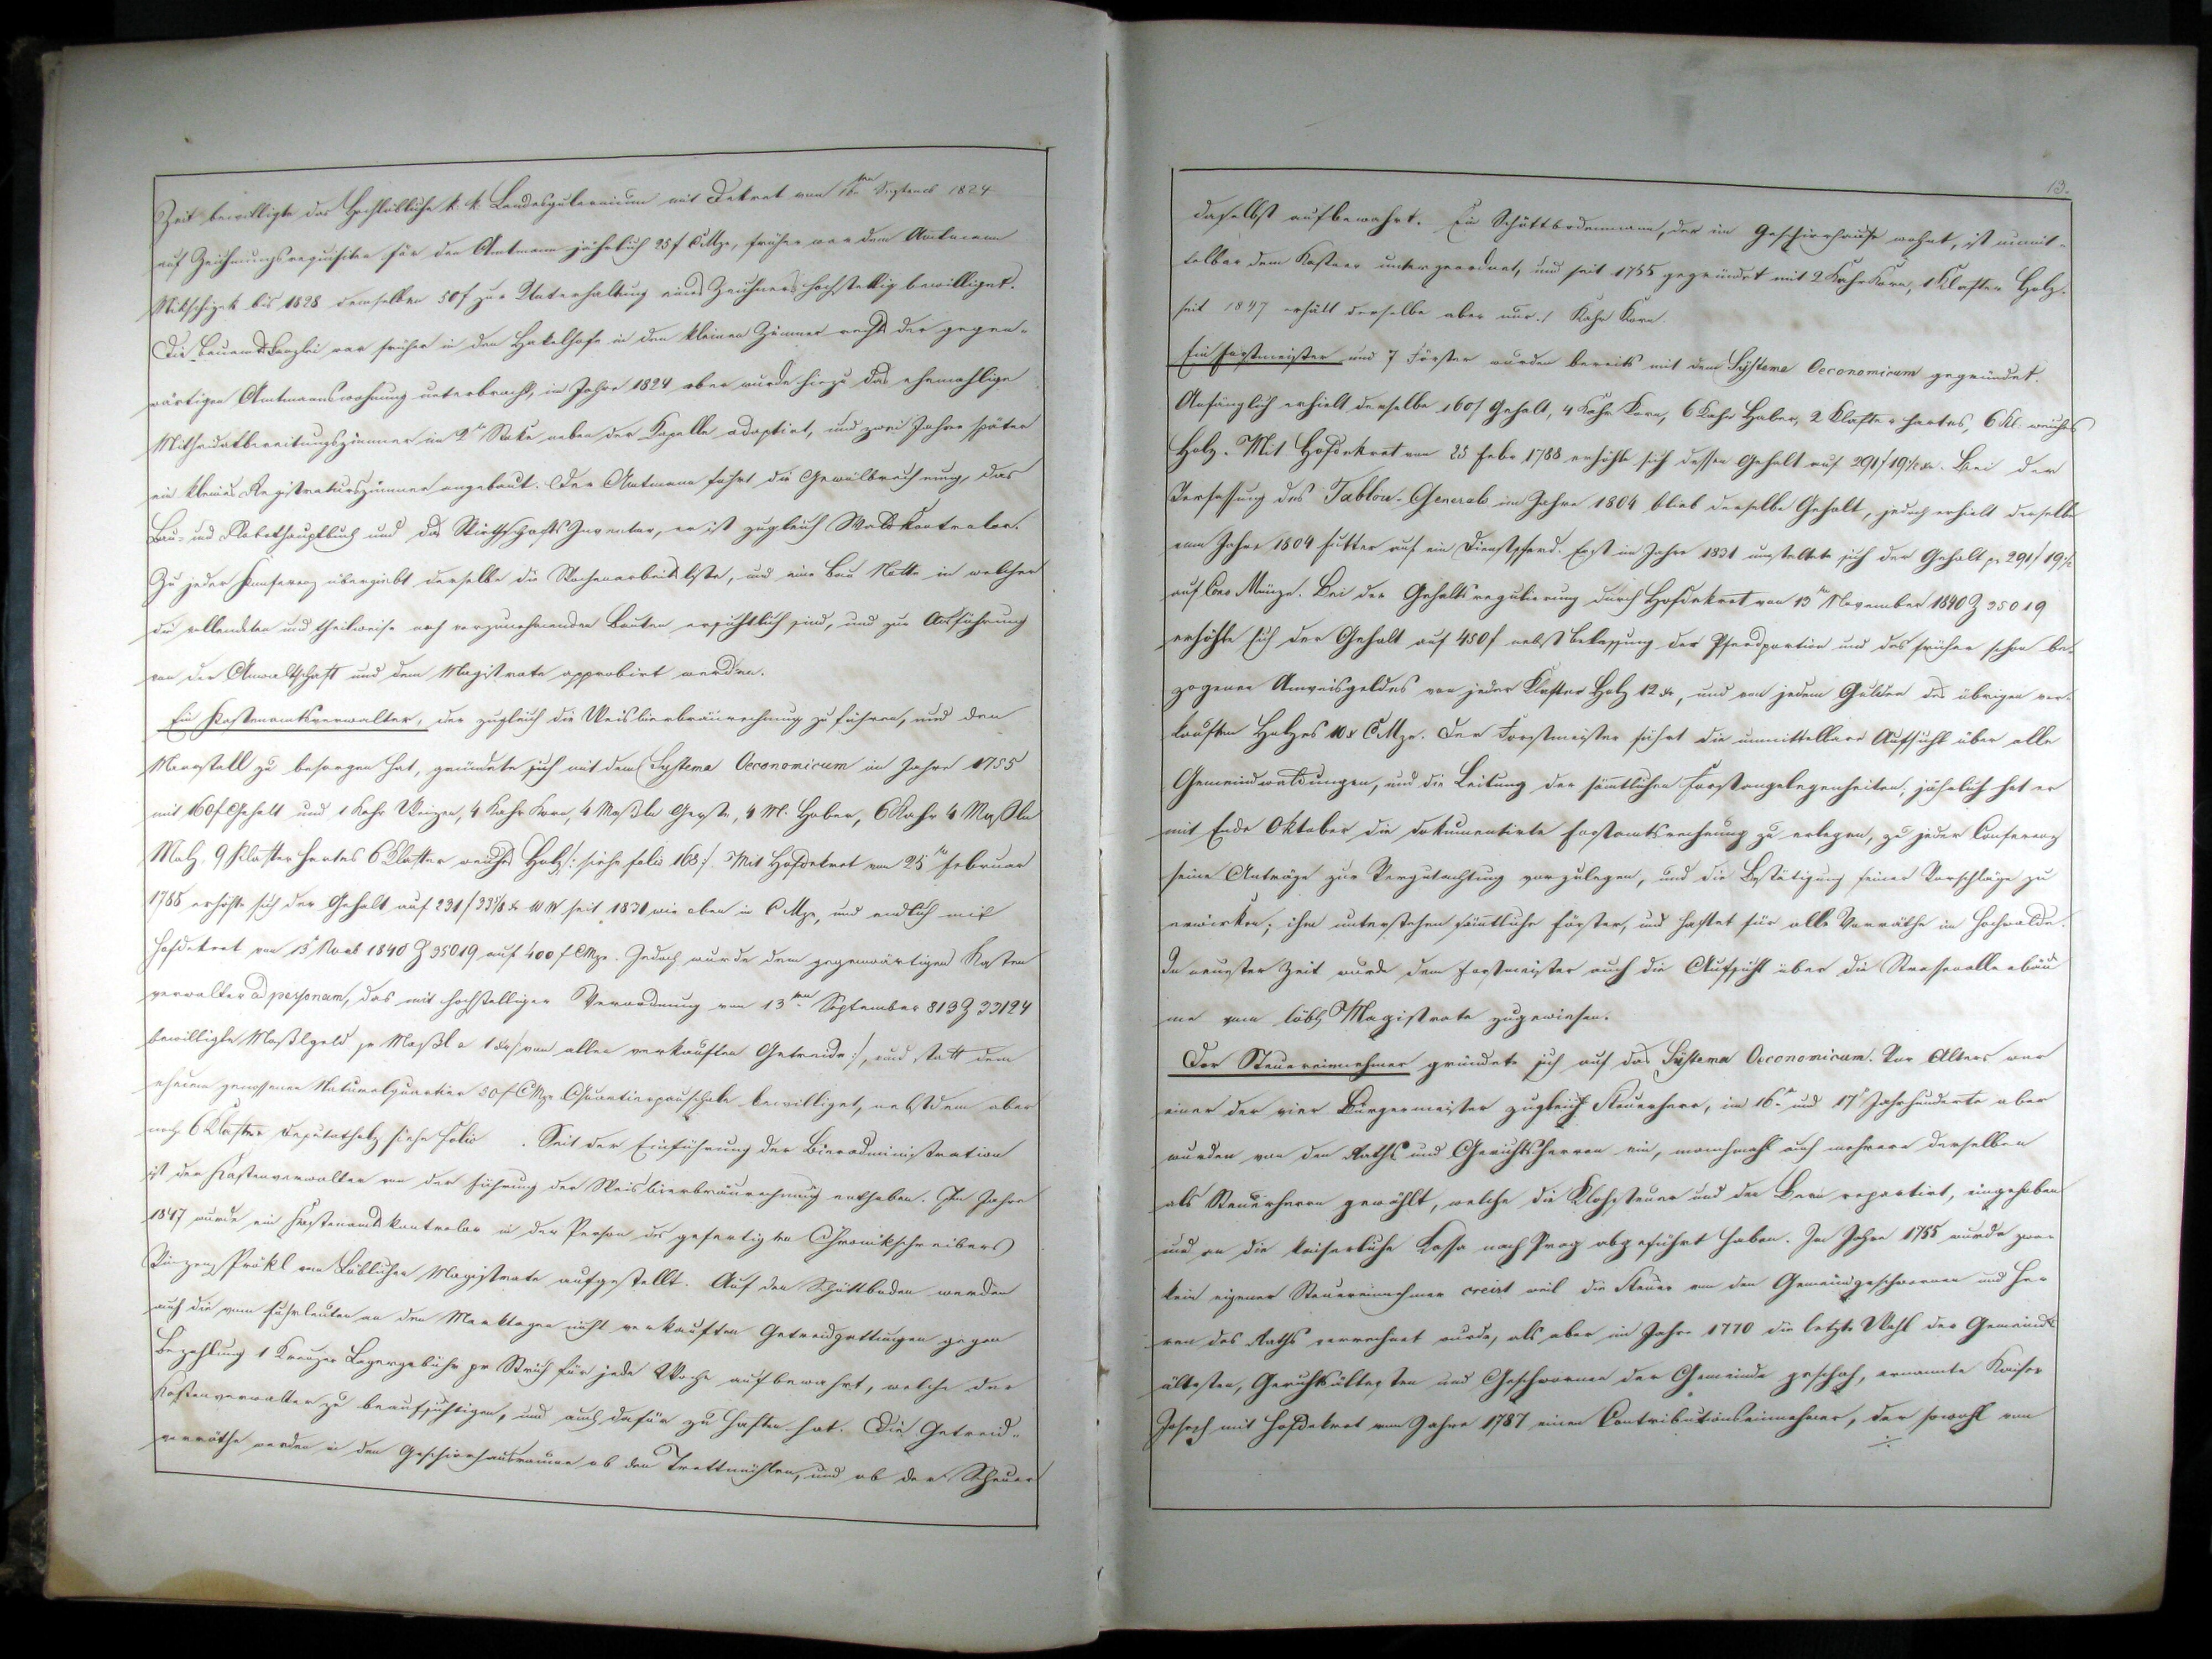 Zeit bewilligte das Hochlöbliche k. k. Landesgubernium mit Dekret vom 16ten Septemb 1824
auf Zeichnungsrequisiten für den Amtmann jährlich 25 f CMze, früher war dem Amtmann
bis 1828 demselben 50 f zur Unterhaltung eines Zeichners hochstellig bewilliget.
Die Bauamtskanzlei war früher in den Hakelhofe in den kleinen Zimmer rechts der gegen-
wärtigen Amtmannswohnung unterbracht, im Jahre 1824 aber wurde hiezu das ehemahlige
Mithridatbereitungszimmer im 2ten Stoke neben der Kapelle adaptirt, und zwei Jahre später
ein kleines Registraturszimmer angebaut. Der Amtmann führt die Gewölbrechnung, das
Bau- und Robothauptbuch und das Wirthschafts Inventar, er ist zugleich Wald Kontrolor.
Zu jeder Konferenz übergiebt derselbe die Wochenarbeitsliste, und eine Bau Notte in welcher
die vollendeten und theilweise noch vorzunehmenden Bauten ersichtlich sind, und zur Ausführung
von der Anwaltschaft und dem Magistrate approbirt werden.
Ein Kastenamtsverwalter, der zugleich die Weisbierbräurechnung zu führen, und den
Marstall zu besorgen hat, gründete sich mit dem Systema Oeconomicum im Jahre 1755
mit 160 f Gehalt und 1 Kahr Weizen, 4 Kahr Korn, 4 Maßln Gerste, 4 M. Haber, 6 Kahr 4 Maßln
Malz, 9 Klafter hartes 6 Klafter weiches Holz /: siehe folio 168 :/ Mit Hofdekret vom 25ten Februar
1788 erhöhte sich der Gehalt auf 231 f 33 1/8 xr W W seit 1831 wie oben in C Mze, und endlich mit
Hofdekret vom 13 Novb 1840 Z 35019 auf 400 f CMze. Jedoch wurde dem gegenwärtigen Kasten
verwalter ad personam, das mit hochstelliger Verordnung vom 13ten September 813 Z 33124
bewilligte Maßlgeld pr Maßl a 1 xr /: von allen verkauften Getreide :/, und statt dem
ehevor genossenen Naturalquartier 50 f CMze Quartierpauschale bewilliget, nebstdem aber
noch 6 Klafter Deputatholz siehe Folio . Seit der Einführung der Bieradministration
ist der Kastenverwalter von der Führung der Weisbierbräurechnung enthoben. Im Jahre
1847 wurde ein Kastenamtskontrolor in der Person des gefertigten Chronikschreibers
Vinzenz Prökl vom Löblichen Magistrate aufgestellt. Auf den Schüttboden werden
auch die vom Fuhrleuten an den Marktagen nicht verkauften Getreidgattungen gegen
Bezahlung 1 Kreuzer Lagergebühr pr Strich für jede Woche aufbewahrt, welche der
Kastenverwalter zu beaufsichtigen, und auch dafür zu haften hat. Die Getreid-
vorräthe werden in den Geschirrhausraume ob den Trettmühlen, und ob der Scheuer
13.
daselbst aufbewahrt. Ein Schüttbodenmann, der im Geschirrhause wohnt, ist unmit-
telbar dem Kastner untergeordnet, und seit 1755 gegründet mit 2 Kahr Korn, 1 Klafter Holz.
seit 1847 erhält derselbe aber nur 1 Kahr Korn.
Ein Forstmeister und 7 Förster wurden bereits mit dem Systema Oeconomicum gegründet.
Anfänglich erhielt derselbe 160 f Gehalt, 4 Kahr Korn, 6 Kahr Haber, 2 Klafter hartes, 6 Kl. weiches
Holz. Mit Hofdekret vom 25 Febr 1788 erhöhte sich dessen Gehalt auf 291 f 19 1/2 xr. Bei der
Verfassung des Tablou-Generals im Jahre 1804 blieb derselbe Gehalt, jedoch erhielt derselbe
vom Jahre 1804 Futter auf ein Dienstpferd. Erst im Jahre 1831 umstaltete sich der Gehalt pr 291 f 19 1/2
auf Conv Münze. Bei der Gehaltsregulierung durch Hofdekret vom 13ten November 1840 Z 35019
erhöhte sich der Gehalt auf 450 f nebst Belassung der Pferdportion und des früher schon be-
zogenen Anweisgeldes von jeder Klafter Holz 12 xr, und von jedem Gulden des übrigen ver-
kauften Holzes 10 x CMze. Der Forstmeister führt die unmittelbare Aufsicht über alle
Gemeindwaldungen, und die Leitung der sämtlichen Forstangelegenheiten; jährlich hat er
mit Ende Oktober die dokumentirte Forstamtsrechnung zu erlegen, zu jeder Conferenz
seine Anträge zur Begutachtung vorzulegen, und die Bestätigung seiner Vorschläge zu
erwirken; ihm unterstehen sämtliche Förster, und haftet für alle Vorräthe im Hochwalde.
In neuester Zeit wurde dem Forstmeister auch die Aufsicht über die Strassenalleebäu
me vom löbl Magistrate zugewiesen.
Der Steuereinnehmer gründete sich auf das Systema Oeconomicum. Vor Alters war
einer der vier Bürgermeister zugleich Steuerherr, im 16ten und 17ten Jahrhunderte aber
wurden von den Raths und Gerichtsherren ein, manchmahl auch mehrere derselben
als Steuerherrn gewählt, welche die Klohsteuer und die Bern repartirt, eingehoben
und an die kaiserliche Kassa nach Prag abgeführt haben. Im Jahre 1755 wurde zwar
kein eigener Steuereinnehmer creirt weil die Steuer von den Gemeindgeschwornen und Her-
ren des Raths verrechnet wurde, als aber im Jahre 1770 die letzte Wahl der Gemeinds
ältesten, Gerichtsältesten und Geschwornen der Gemeinde geschah, ernannte Kaiser
Joseph mit Hofdekret vom Jahre 1787 einen Contributionseinnehmer, der sowohl von